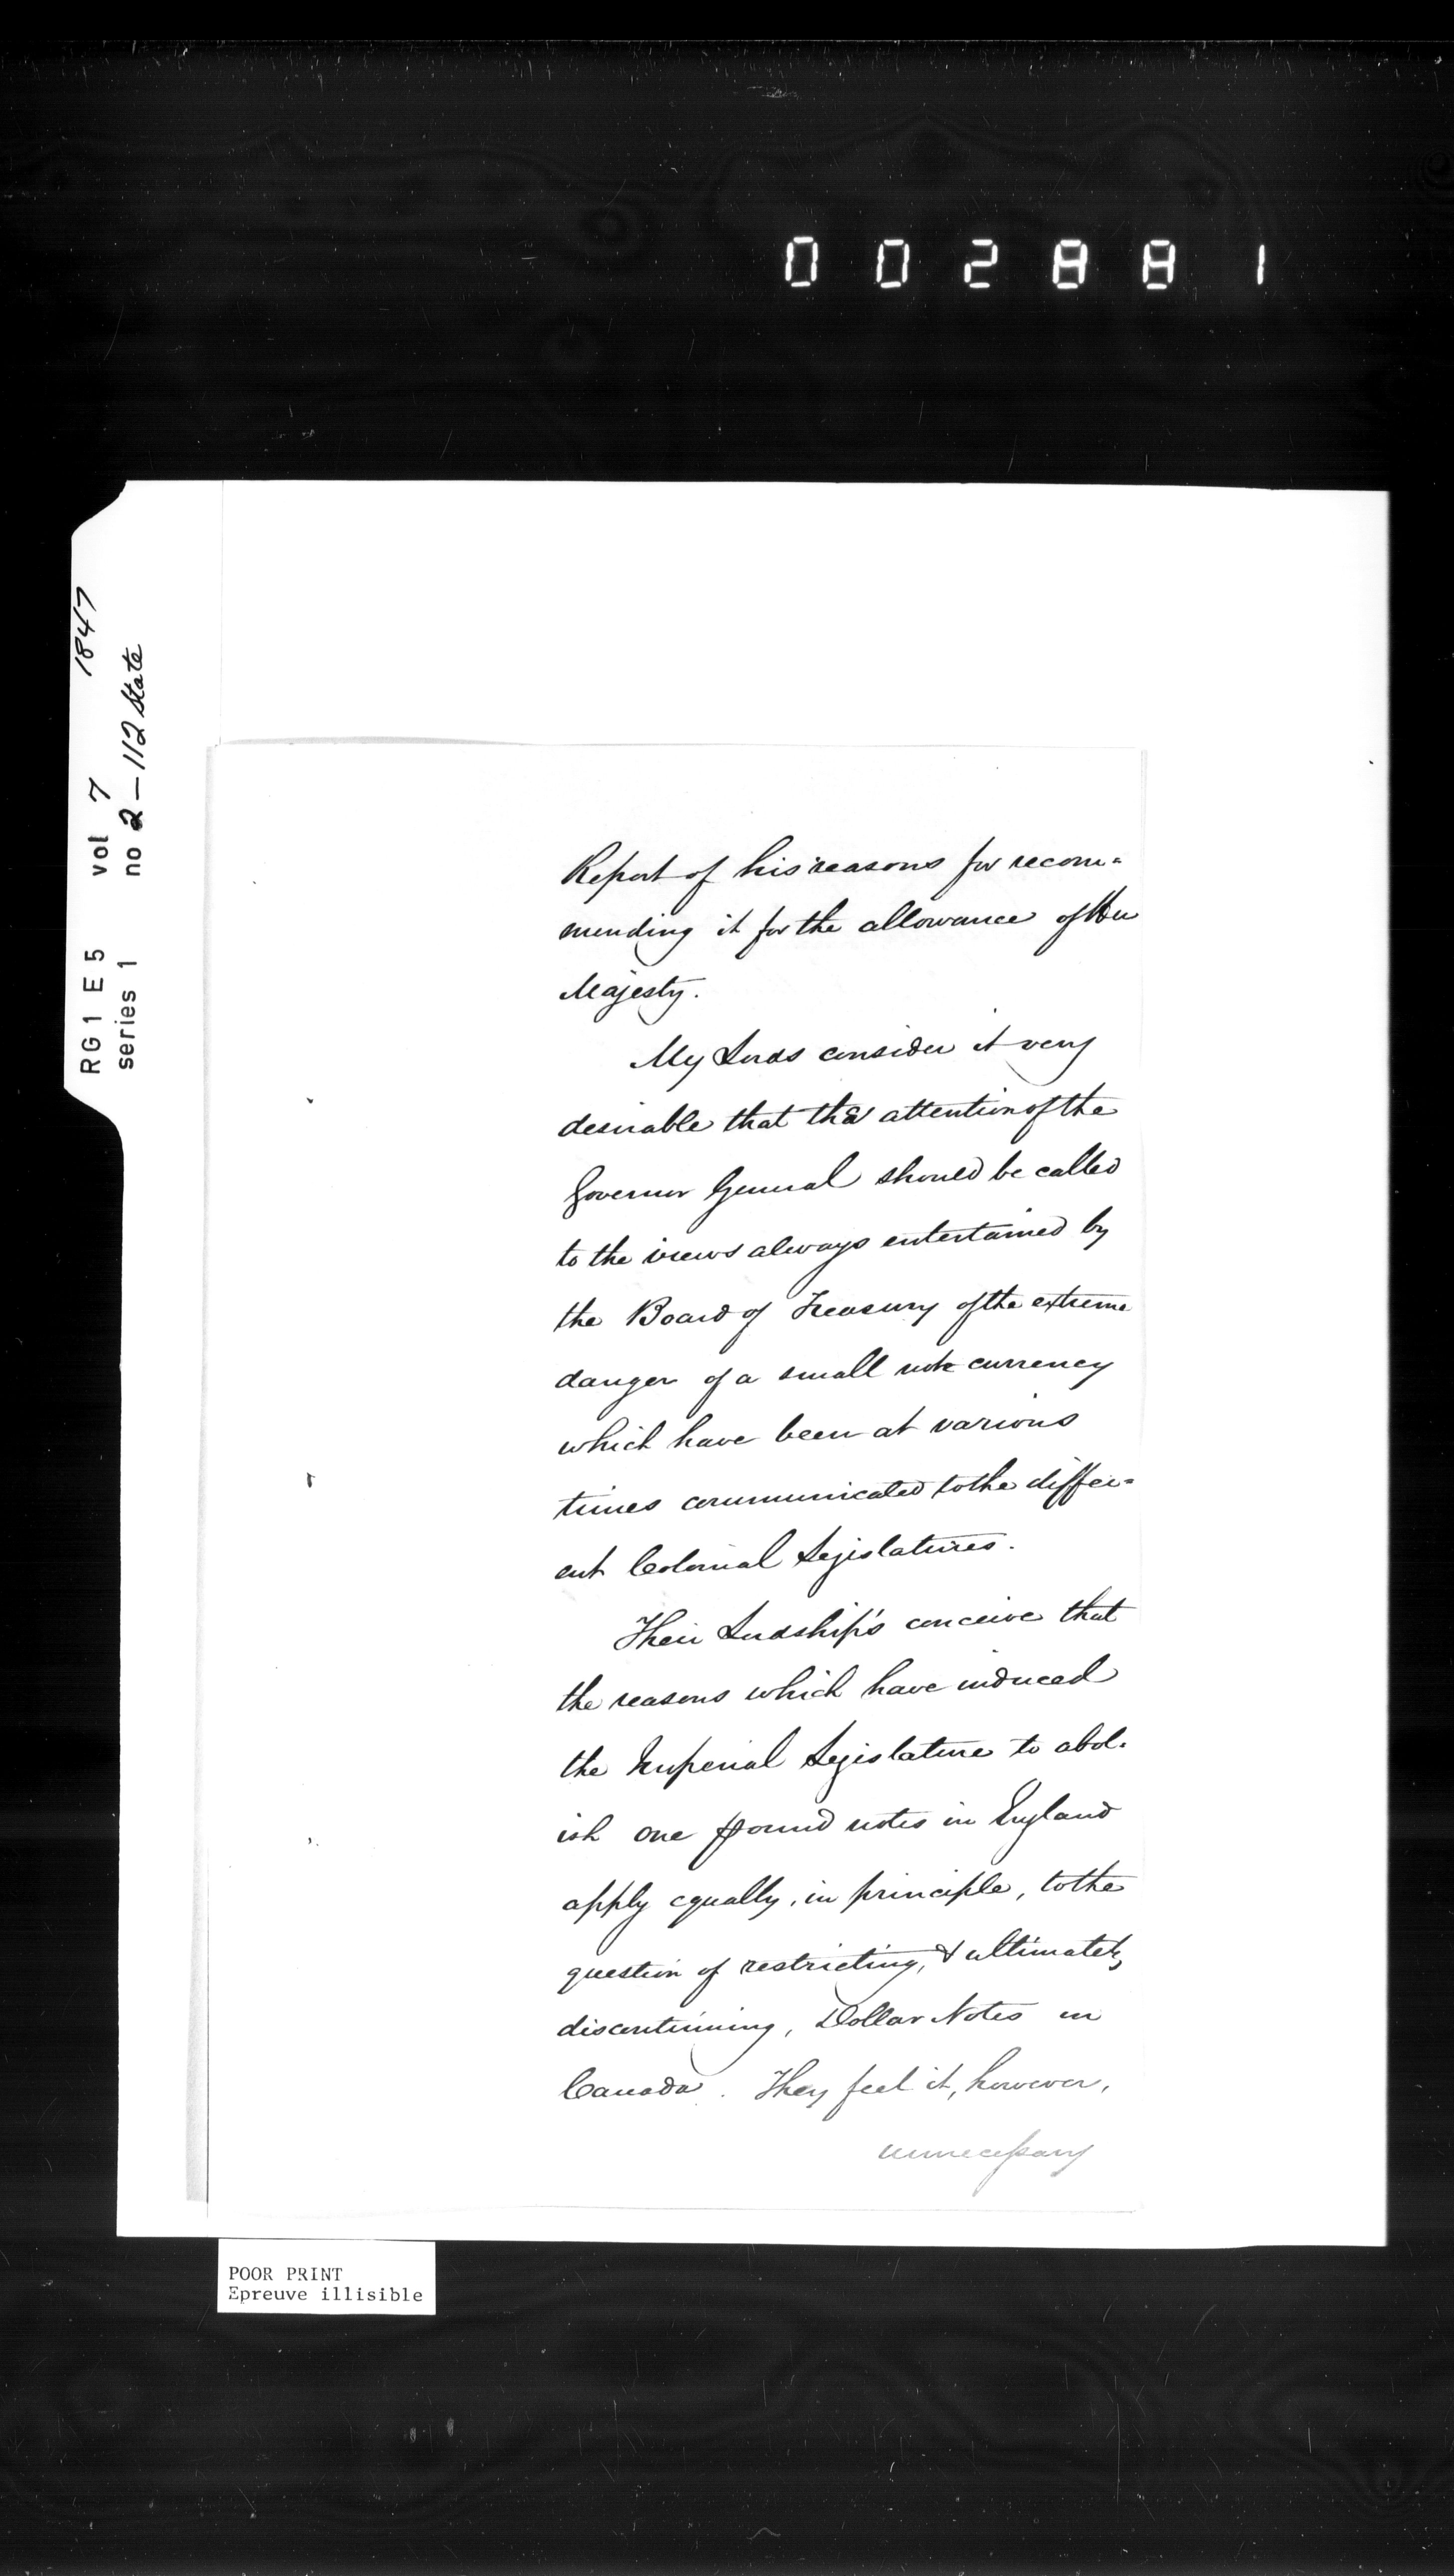 002881
RG1 E5 vol 7 1847
series 1 no 2-112 State
Report of his reasons for recom=
mending it for the allowance of Her
Majesty.
My Lords consider it very
desirable that the attention of the
Governor General should be called
to the views always entertained by
the Board of Treasury of the extreme
danger of a small note currency
which have been at various
times communicated to the differ=
ent Colonial Legislatures.
Their Lordship's conceive that
the reasons which have induced
the Imperial Legislature to abol-
ish one pound notes in England
apply equally, in principle, to the
question of restricting, & ultimately
discontinuing, Dollar Notes in
Canada. They feel it, however,
unnecessary
POOR PRINT
Epreuve illisible